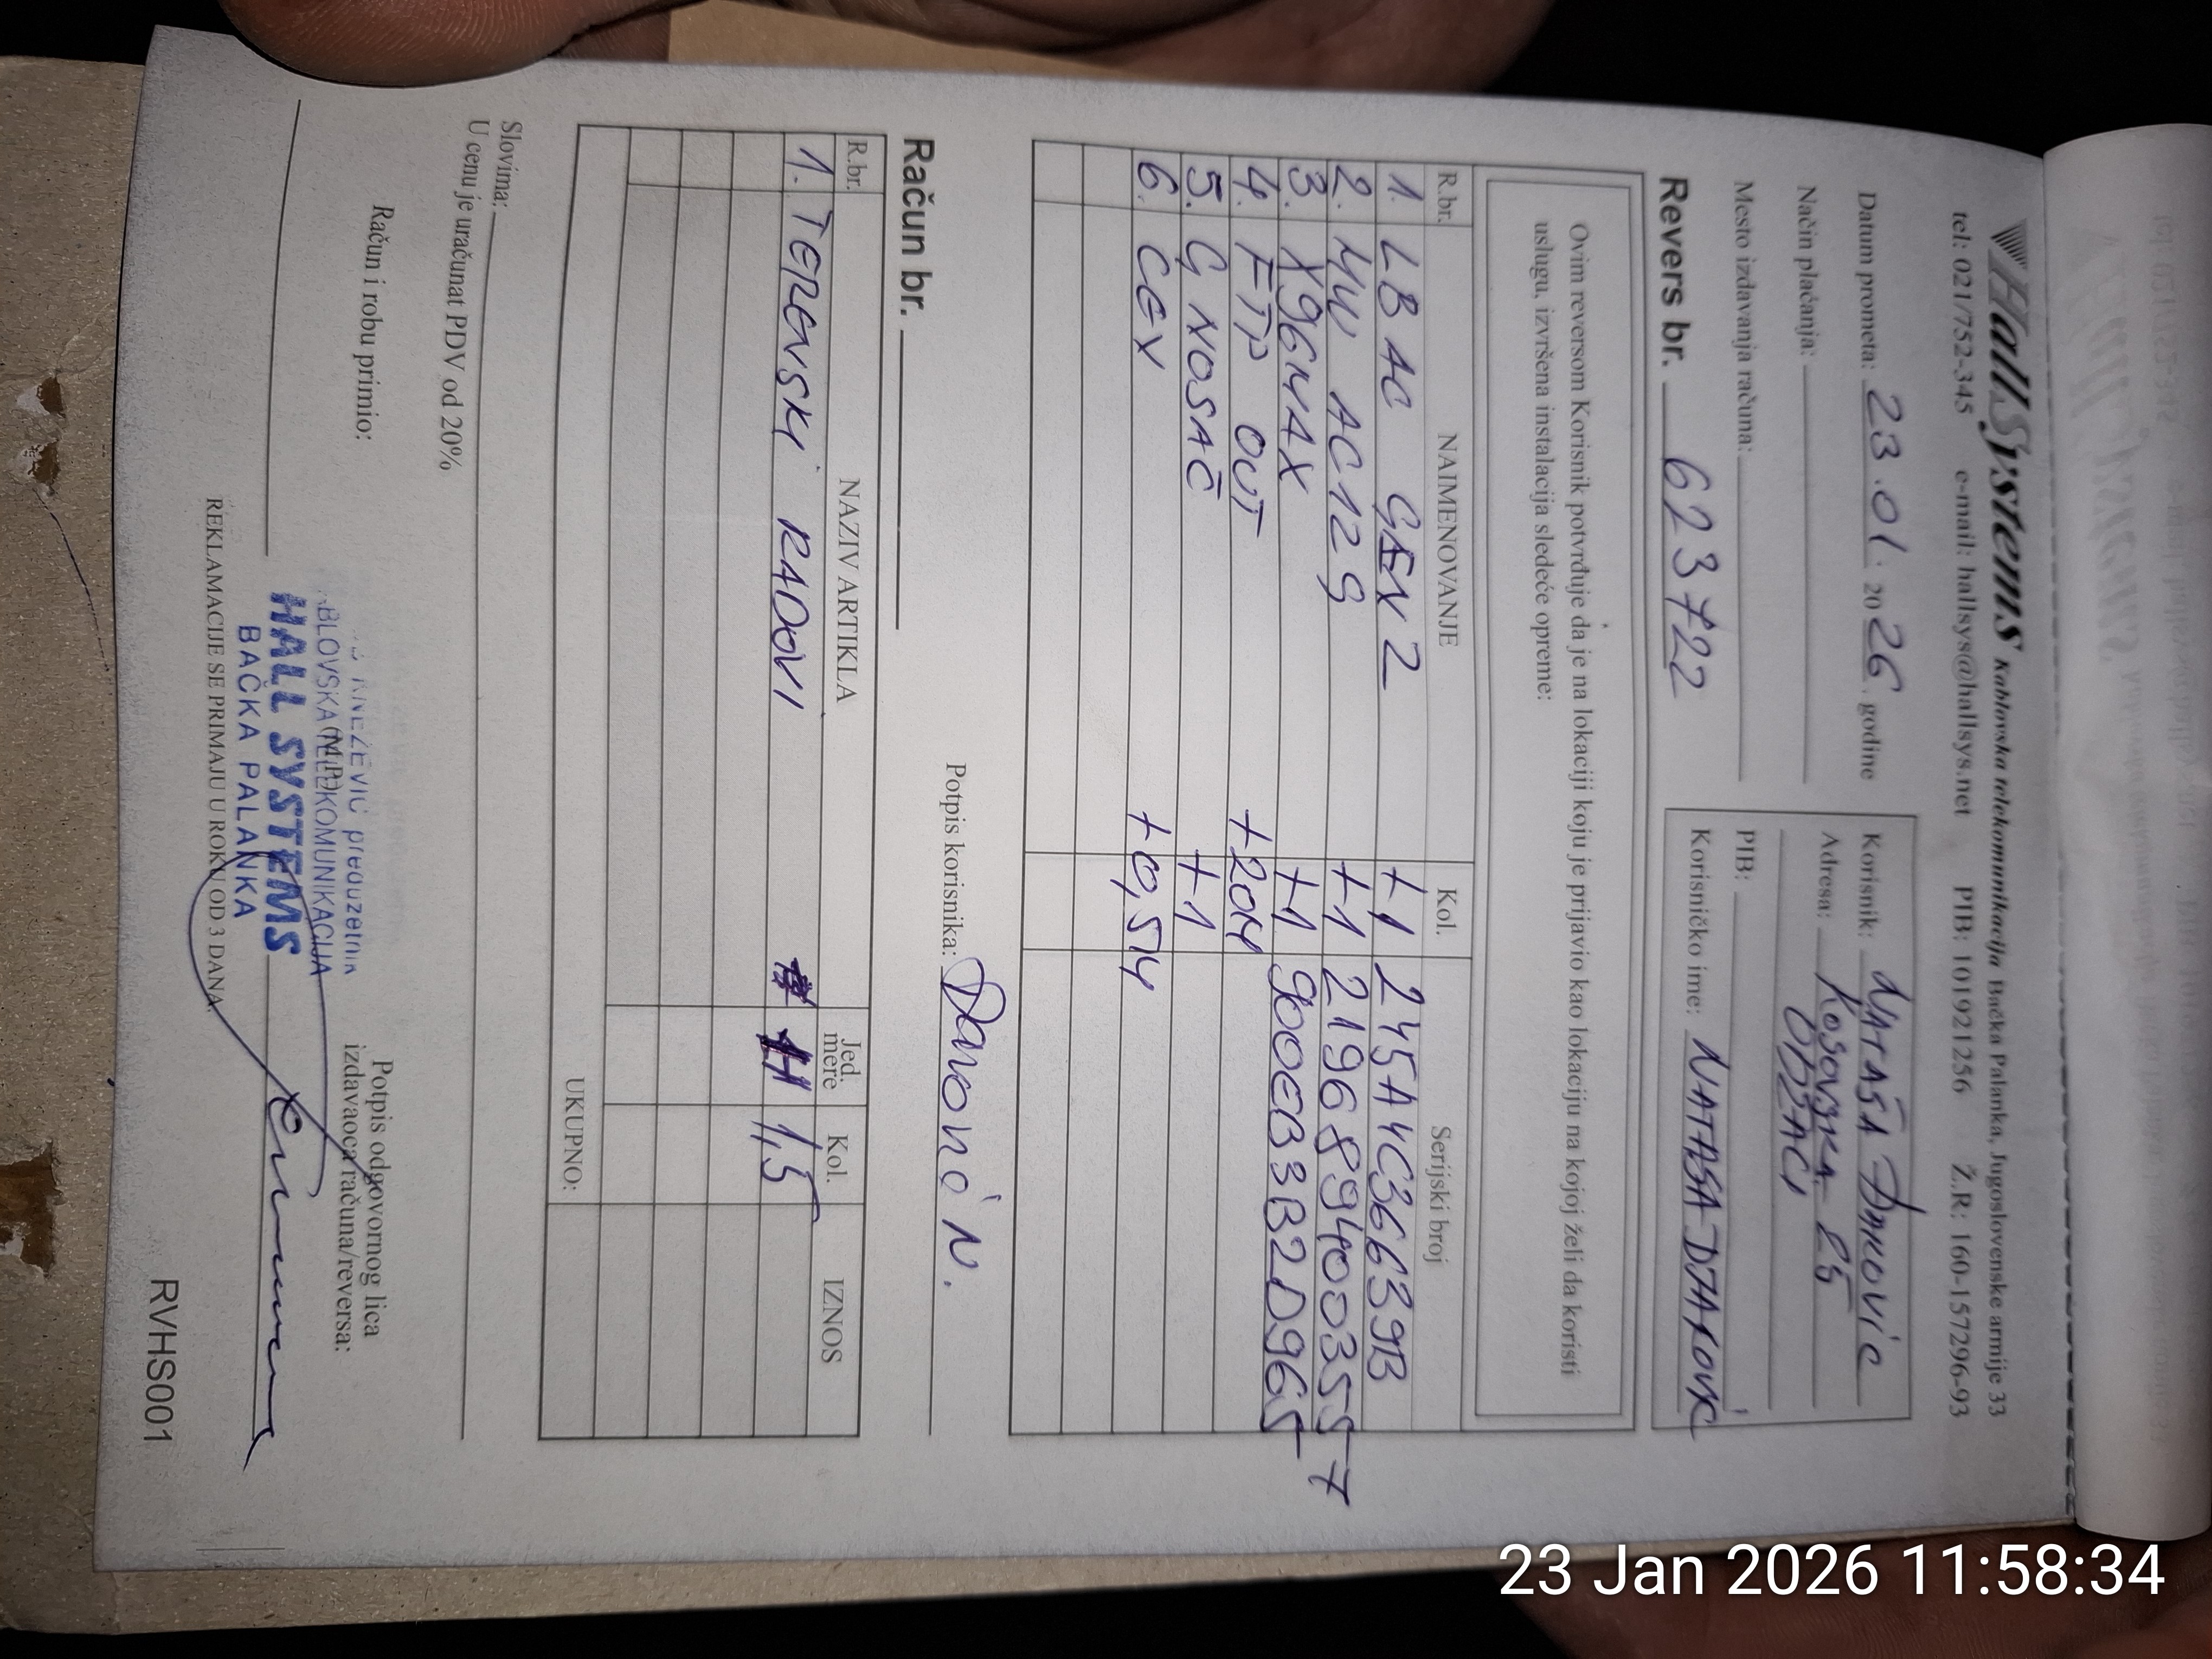 HallSystems Kablovska telekomunikacija Bačka Palanka, Jugoslovenske armije 33
tel: 021/752-345 e-mail: hallsys@hallsys.net PIB: 101921256 Ž.R: 160-157296-93
Datum prometa: 23.01. 2026. godine
Način plaćanja:
Mesto izdavanja računa:
Korisnik: NATAŠA ĐAKOVIĆ
Adresa: KOSOVSKA 25
ODŽACI
PIB:
Korisničko ime: NATASA DJAKOVIĆ
Revers br. 623722
Ovim reversom Korisnik potvrđuje da je na lokaciji koju je prijavio kao lokaciju na kojoj želi da koristi
uslugu, izvršena instalacija sledeće opreme:
R.br. NAIMENOVANJE Kol. Serijski broj
1. LB AC GEN 2 +1 245A4C36639B
2. MW AC12G +1 2196894003557
3. X96MAX +1 900EB3B2D965
4. FTP OUT +20M
5. G NOSAČ +1
6. CEV +0,5M
Potpis korisnika:
Račun br.
R.br. NAZIV ARTIKLA Jed. mere Kol. IZNOS
1. TERENSKI RADOVI H 1,5
UKUPNO:
Slovima:
U cenu je uračunat PDV od 20%
Račun i robu primio:
Potpis odgovornog lica
izdavaoca računa/reversa:
KNEŽEVIĆ preduzetnik
ABLOVSKA TELEKOMUNIKACIJA
(M.P.)
HALL SYSTEMS
BAČKA PALANKA
REKLAMACIJE SE PRIMAJU U ROKU OD 3 DANA
RVHS001
23 Jan 2026 11:58:34